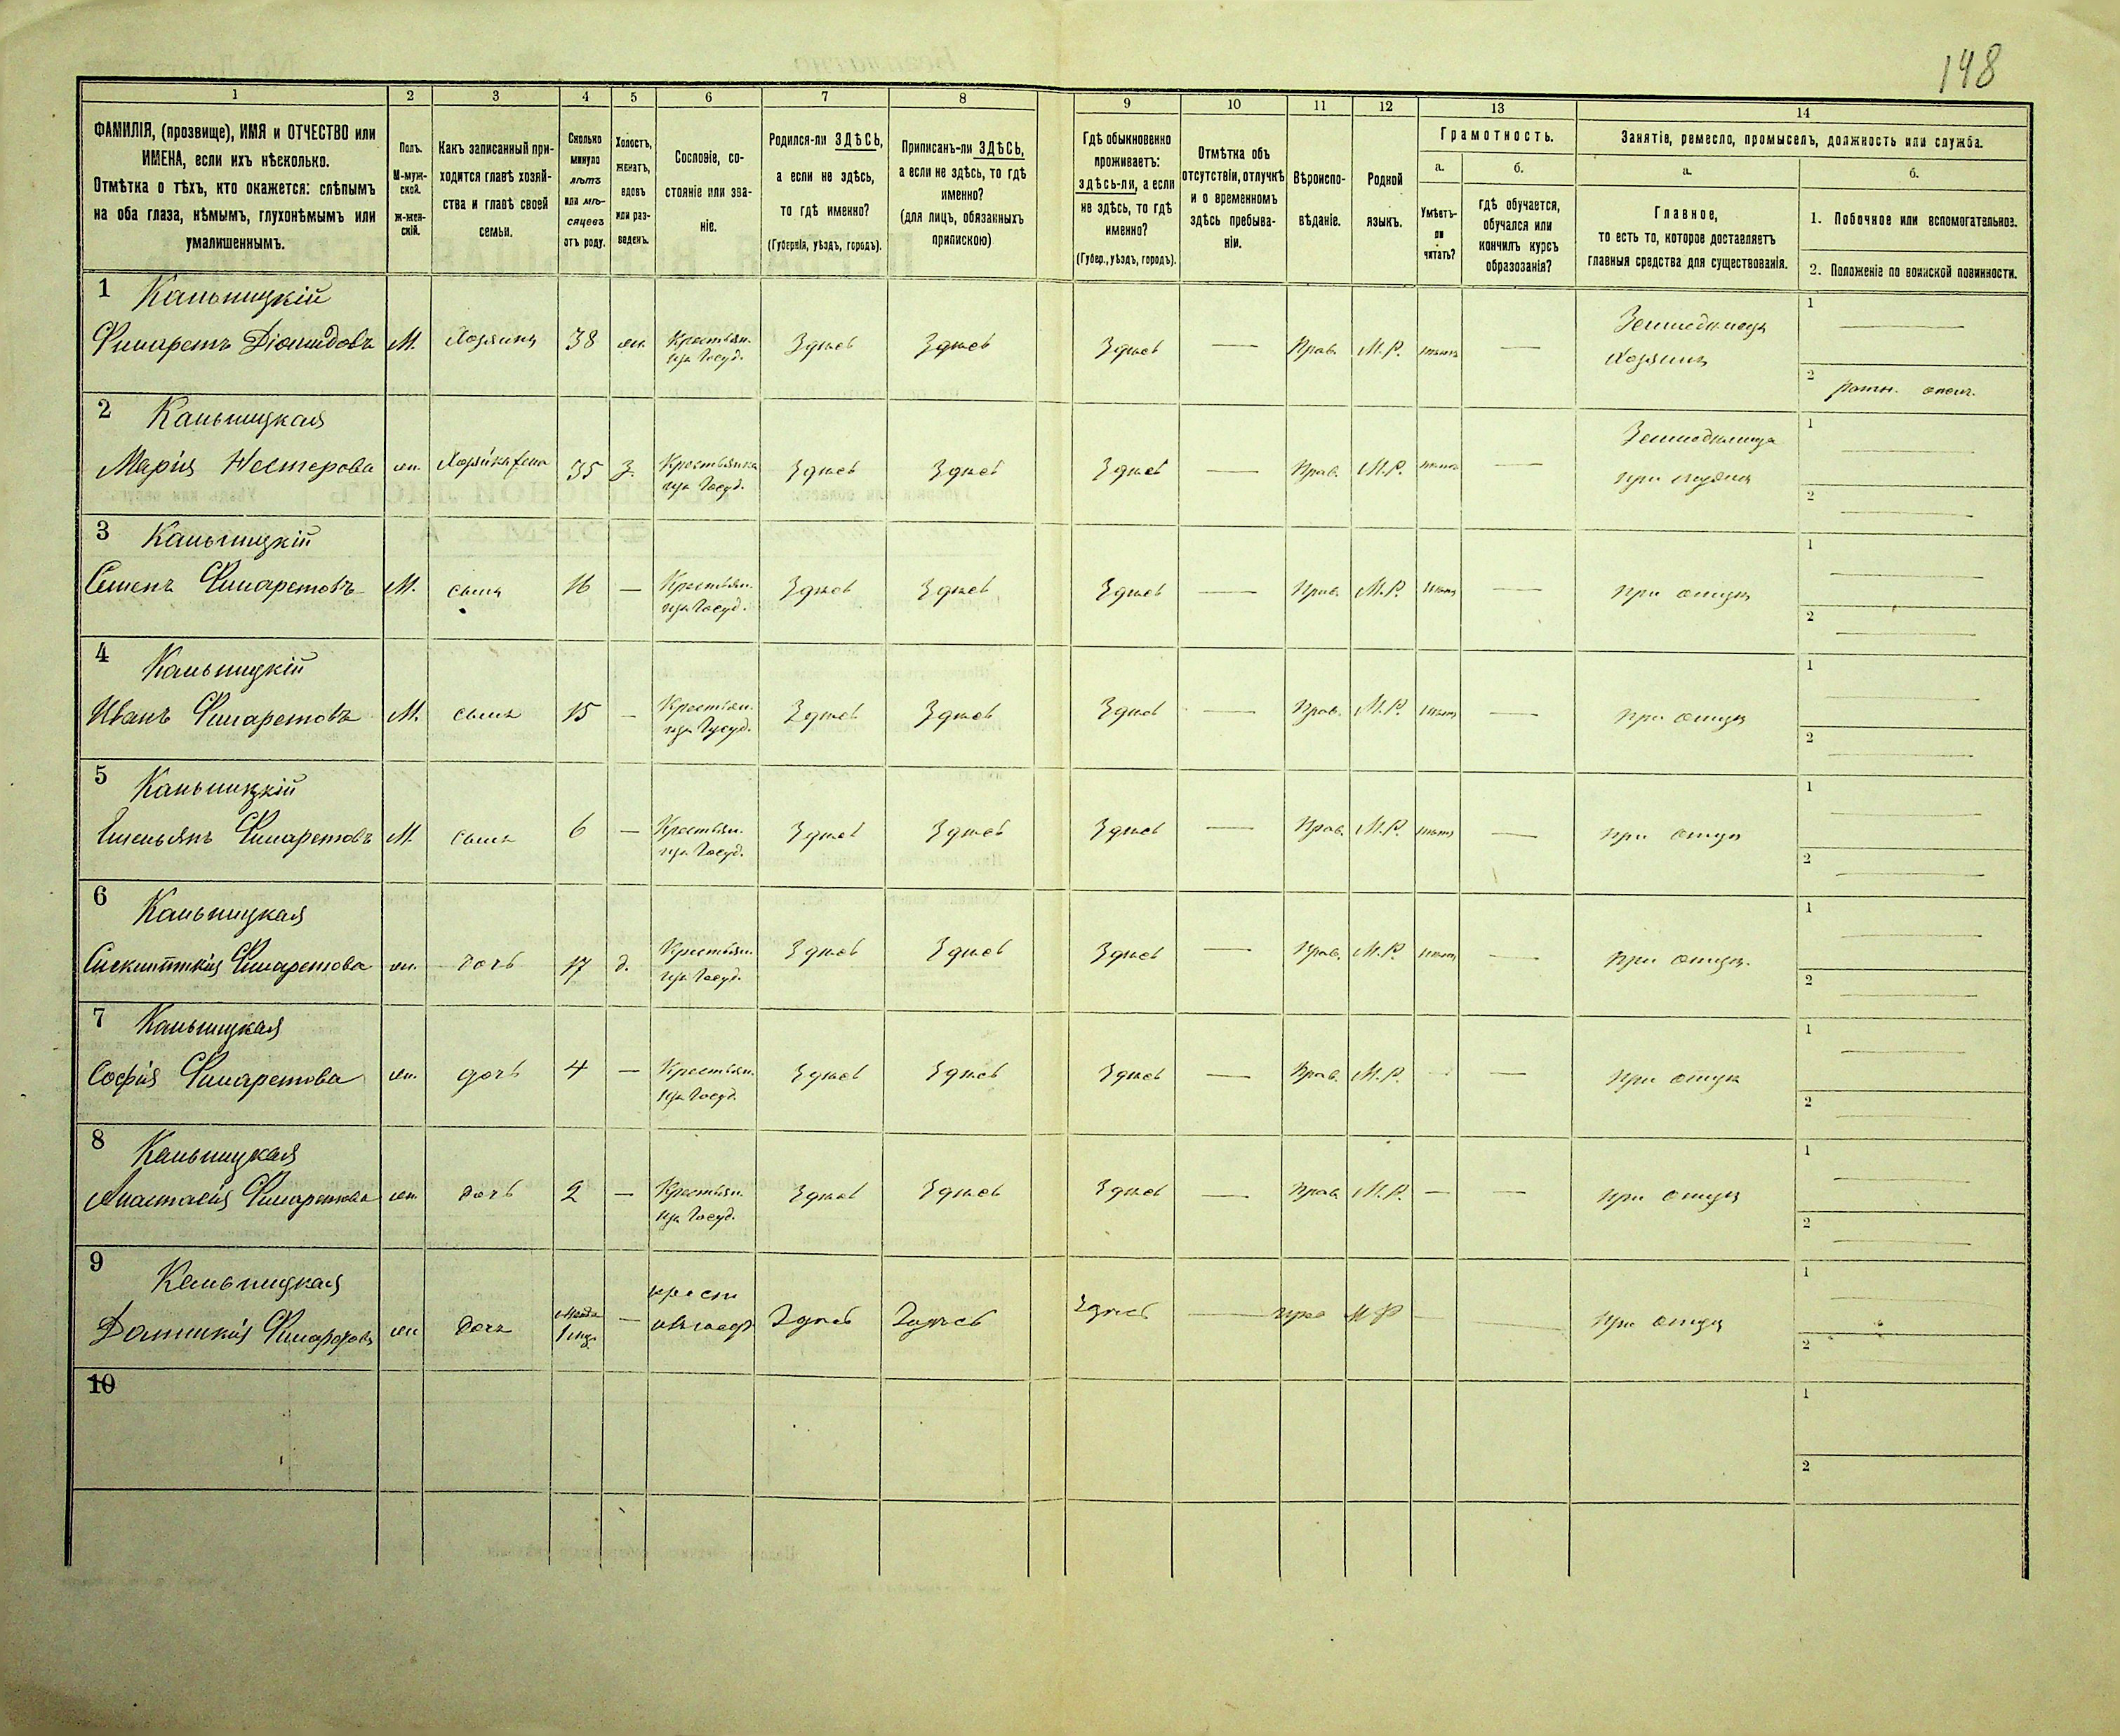 148
1 2 3 4 5 6 7 8 9 10 11 12 13 14
ФАМИЛІЯ, (прозвище), ИМЯ и ОТЧЕСТВО или
ИМЕНА, если ихъ нѣсколько.
Отмѣтка о тѣхъ, кто окажется: слѣпымъ
на оба глаза, нѣмымъ, глухонѣмымъ или
умалишеннымъ.
Полъ.
М-муж-
ской.
Ж-жен-
скій.
Какъ записанный при-
ходится главѣ хозяй-
ства и главѣ своей
семьи.
Сколько
минуло
лѣтъ
или мѣ-
сяцевъ
отъ роду.
Холостъ,
женатъ,
вдовъ
или раз-
веденъ.
Сословіе, со-
стояніе или зва-
ніе.
Родился-ли ЗДѢСЬ,
а если не здѣсь,
то гдѣ именно?
(Губернія, уѣздъ, городъ).
Приписанъ-ли ЗДѢСЬ,
а если не здѣсь, то гдѣ
именно?
(для лицъ, обязанныхъ
припискою)
Гдѣ обыкновенно
проживаетъ:
здѣсь-ли, а если
не здѣсь, то гдѣ
именно?
(Губер., уѣздъ, городъ).
Отмѣтка объ
отсутствіи, отлучкѣ
и о временномъ
здѣсь пребыва-
ніи.
Вѣроиспо-
вѣданіе.
Родной
языкъ.
Грамотность.
а. б.
Умѣетъ-
ли
читать?
гдѣ обучается,
обучался или
кончилъ курсъ
образованія?
Занятіе, ремесло, промыселъ, должность или служба.
а. б.
Главное,
то есть то, которое доставляетъ
главныя средства для существованія.
1. Побочное или вспомогательное.
2. Положеніе по воинской повинности.
1 Кальницкій
Филаретъ Діомидовъ М. Хозяинъ 38 жен. Крестьян. Здѣсь Здѣсь Здѣсь — Прав. М.Р. нѣтъ — Земледѣлецъ 1 —
изъ Госуд. Хозяинъ 2 ратн. ополч.
2 Кальницкая
Марія Нестерова жен. 35 З. Крестьянка Здѣсь Здѣсь Здѣсь — Прав. М.Р. нѣтъ — Земледѣлица 1 —
изъ Госуд. при мужѣ 2 —
3 Кальницкій
Семенъ Филаретовъ М. сынъ 16 — Крестьян. Здѣсь Здѣсь Здѣсь — Прав. М.Р. нѣтъ — при отцѣ 1 —
изъ Госуд. 2 —
4 Кальницкій
Иванъ Филаретовъ М. сынъ 15 — Крестьян. Здѣсь Здѣсь Здѣсь — Прав. М.Р. нѣтъ — при отцѣ 1 —
изъ Госуд. 2 —
5 Кальницкій
Емельянъ Филаретовъ М. сынъ 6 — Крестьян. Здѣсь Здѣсь Здѣсь — Прав. М.Р. нѣтъ — при отцѣ 1 —
изъ Госуд. 2 —
6 Кальницкая
Филаретова жен. дочь 17 д. Крестьян. Здѣсь Здѣсь Здѣсь — Прав. М.Р. нѣтъ — при отцѣ 1 —
изъ Госуд. 2 —
7 Кальницкая
Софія Филаретова жен. дочь 4 — Крестьян. Здѣсь Здѣсь Здѣсь — Прав. М.Р. — — при отцѣ 1 —
изъ Госуд. 2 —
8 Кальницкая
Анастасія Филаретова жен. дочь 2 — Крестьян. Здѣсь Здѣсь Здѣсь — Прав. М.Р. — — при отцѣ 1 —
изъ Госуд. 2 —
9 Кальницкая крест
Домникія жен дочь — Здѣсь Здѣсь Здѣсь — пра М Р — — при отцѣ 1 —
2 —
10 1
2